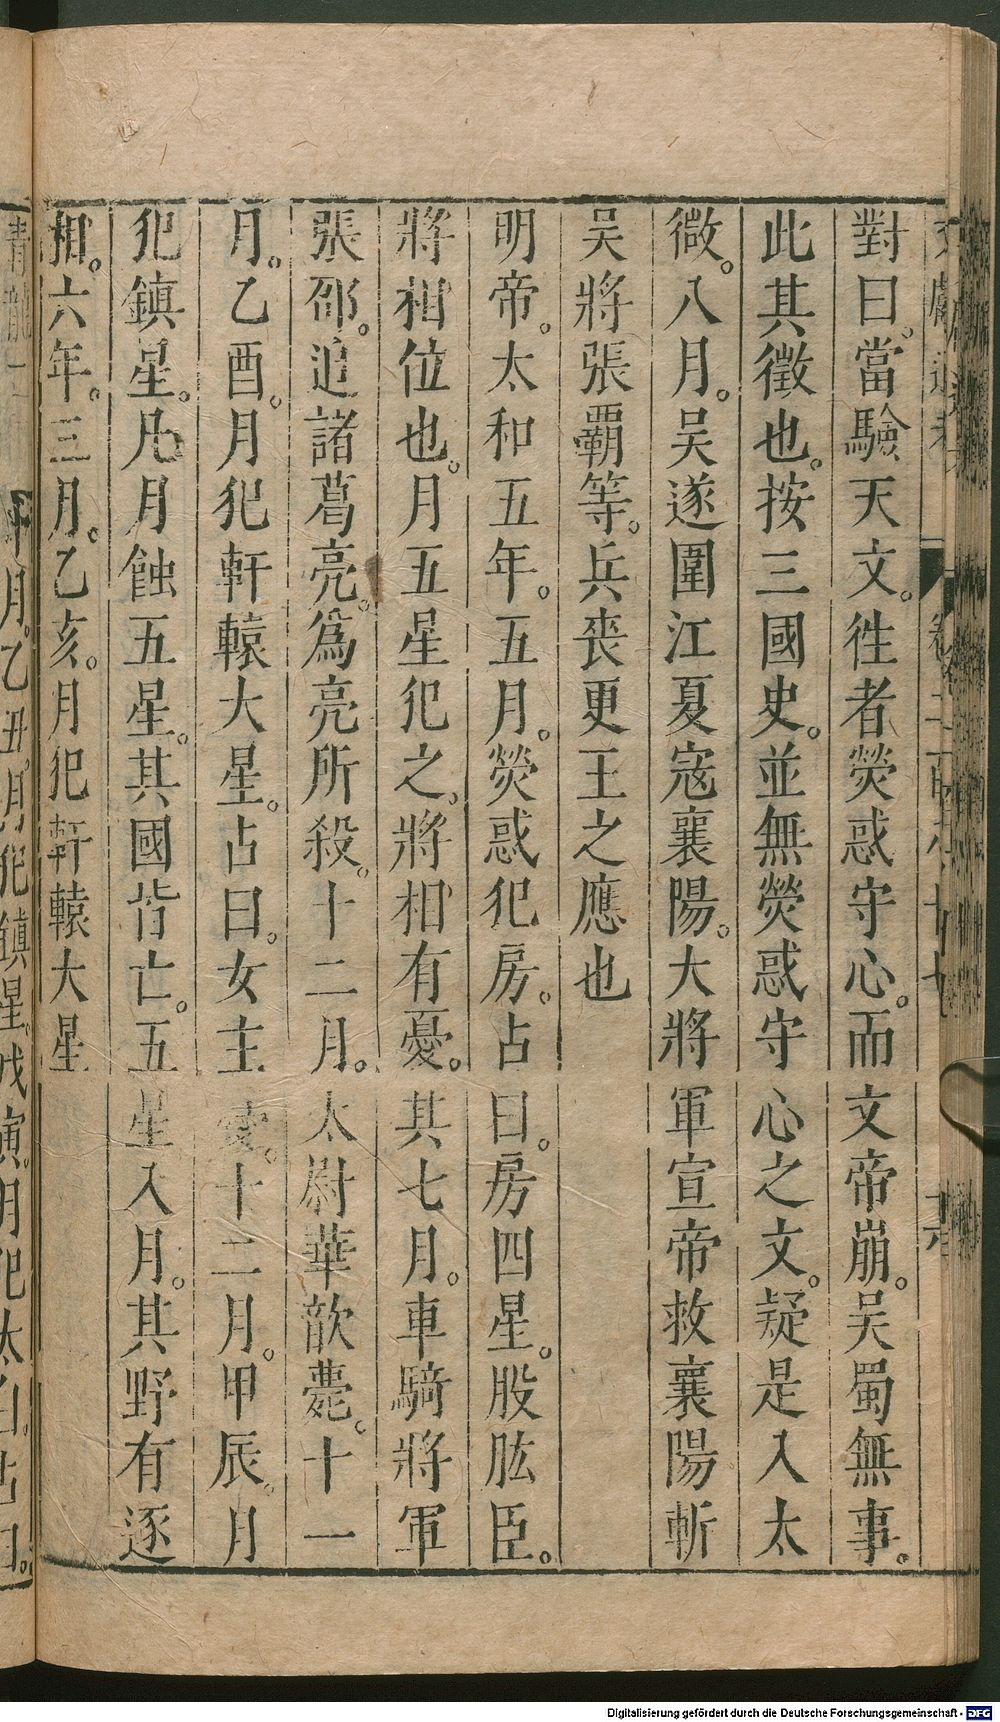 對曰。當驗天文。徃者熒惑守心。而文帝崩。吴蜀無事。
此其徵也。按三國史。並無熒惑守心之文。疑是入太
微。八月。吴遂圍江夏寇襄陽。大將軍宣帝救襄陽斬
吴將張覇等。兵喪更王之應也
明帝。太和五年。五月。熒惑犯房。占曰。房四星。股肱臣。
將相位也。月五星犯之。將相有憂。其七月。車騎將軍
張郃。追諸葛亮。爲亮所殺。十二月。太尉華歆薨。十一
月。乙酉。月犯軒轅大星。占曰。女主憂。十二月。甲辰。月
犯鎮星。凡月蝕五星。其國皆亡。五星入月。其野有逐
相。六年。三月。乙亥。月犯軒轅大星
月。乙丑。月犯鎮星。戊寅。月犯太白。占曰。
Digitalisierung gefördert durch die Deutsche Forschungsgemeinschaft - DFG